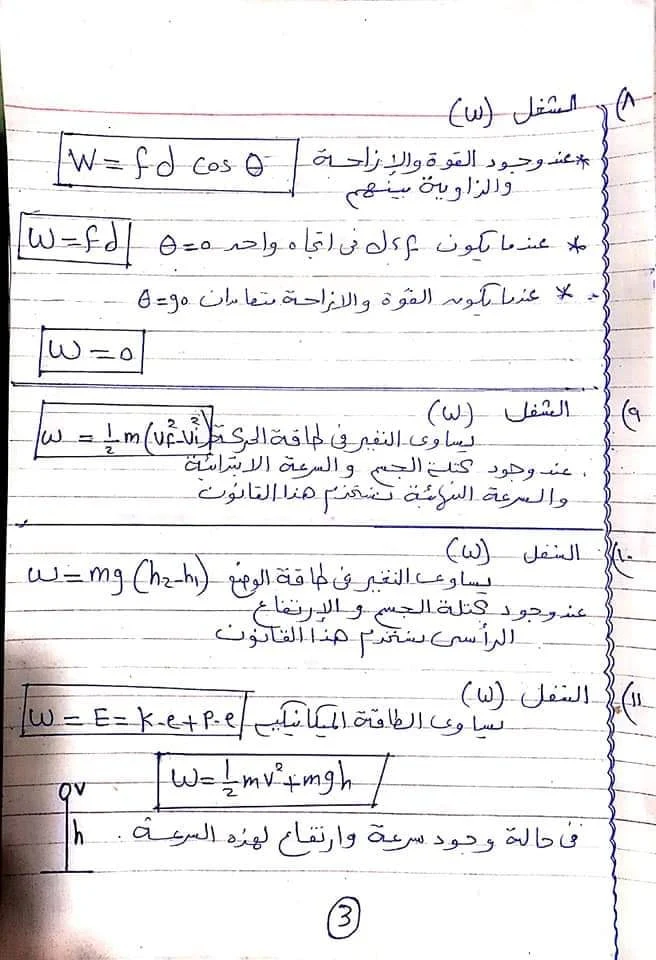 ٨) الشغل (W)
*عند وجود القوة والإزاحة W = fd cos θ
والزاوية بينهم
* عندما يكون f و d فى اتجاه واحد θ=0 W=fd
* عندما يكون القوة والإزاحة متعامدان θ=90
W=0
٩) الشغل (W)
يساوى التغير فى طاقة الحركة W = 1/2 m (Vf²-Vi²)
. عند وجود كتلة الجسم والسرعة الابتدائية
والسرعة النهائية نستخدم هذا القانون
١٠) الشغل (W)
يساوى التغير فى طاقة الوضع W=mg (h2-h1)
عند وجود كتلة الجسم والإرتفاع
الرأسى نستخدم هذا القانون
١١) الشغل (W)
يساوى الطاقة الميكانيكية W = E = K.e+P.e
W=1/2 mv²+mgh
v
h
فى حالة وجود سرعة وارتفاع لهذه السرعة .
3